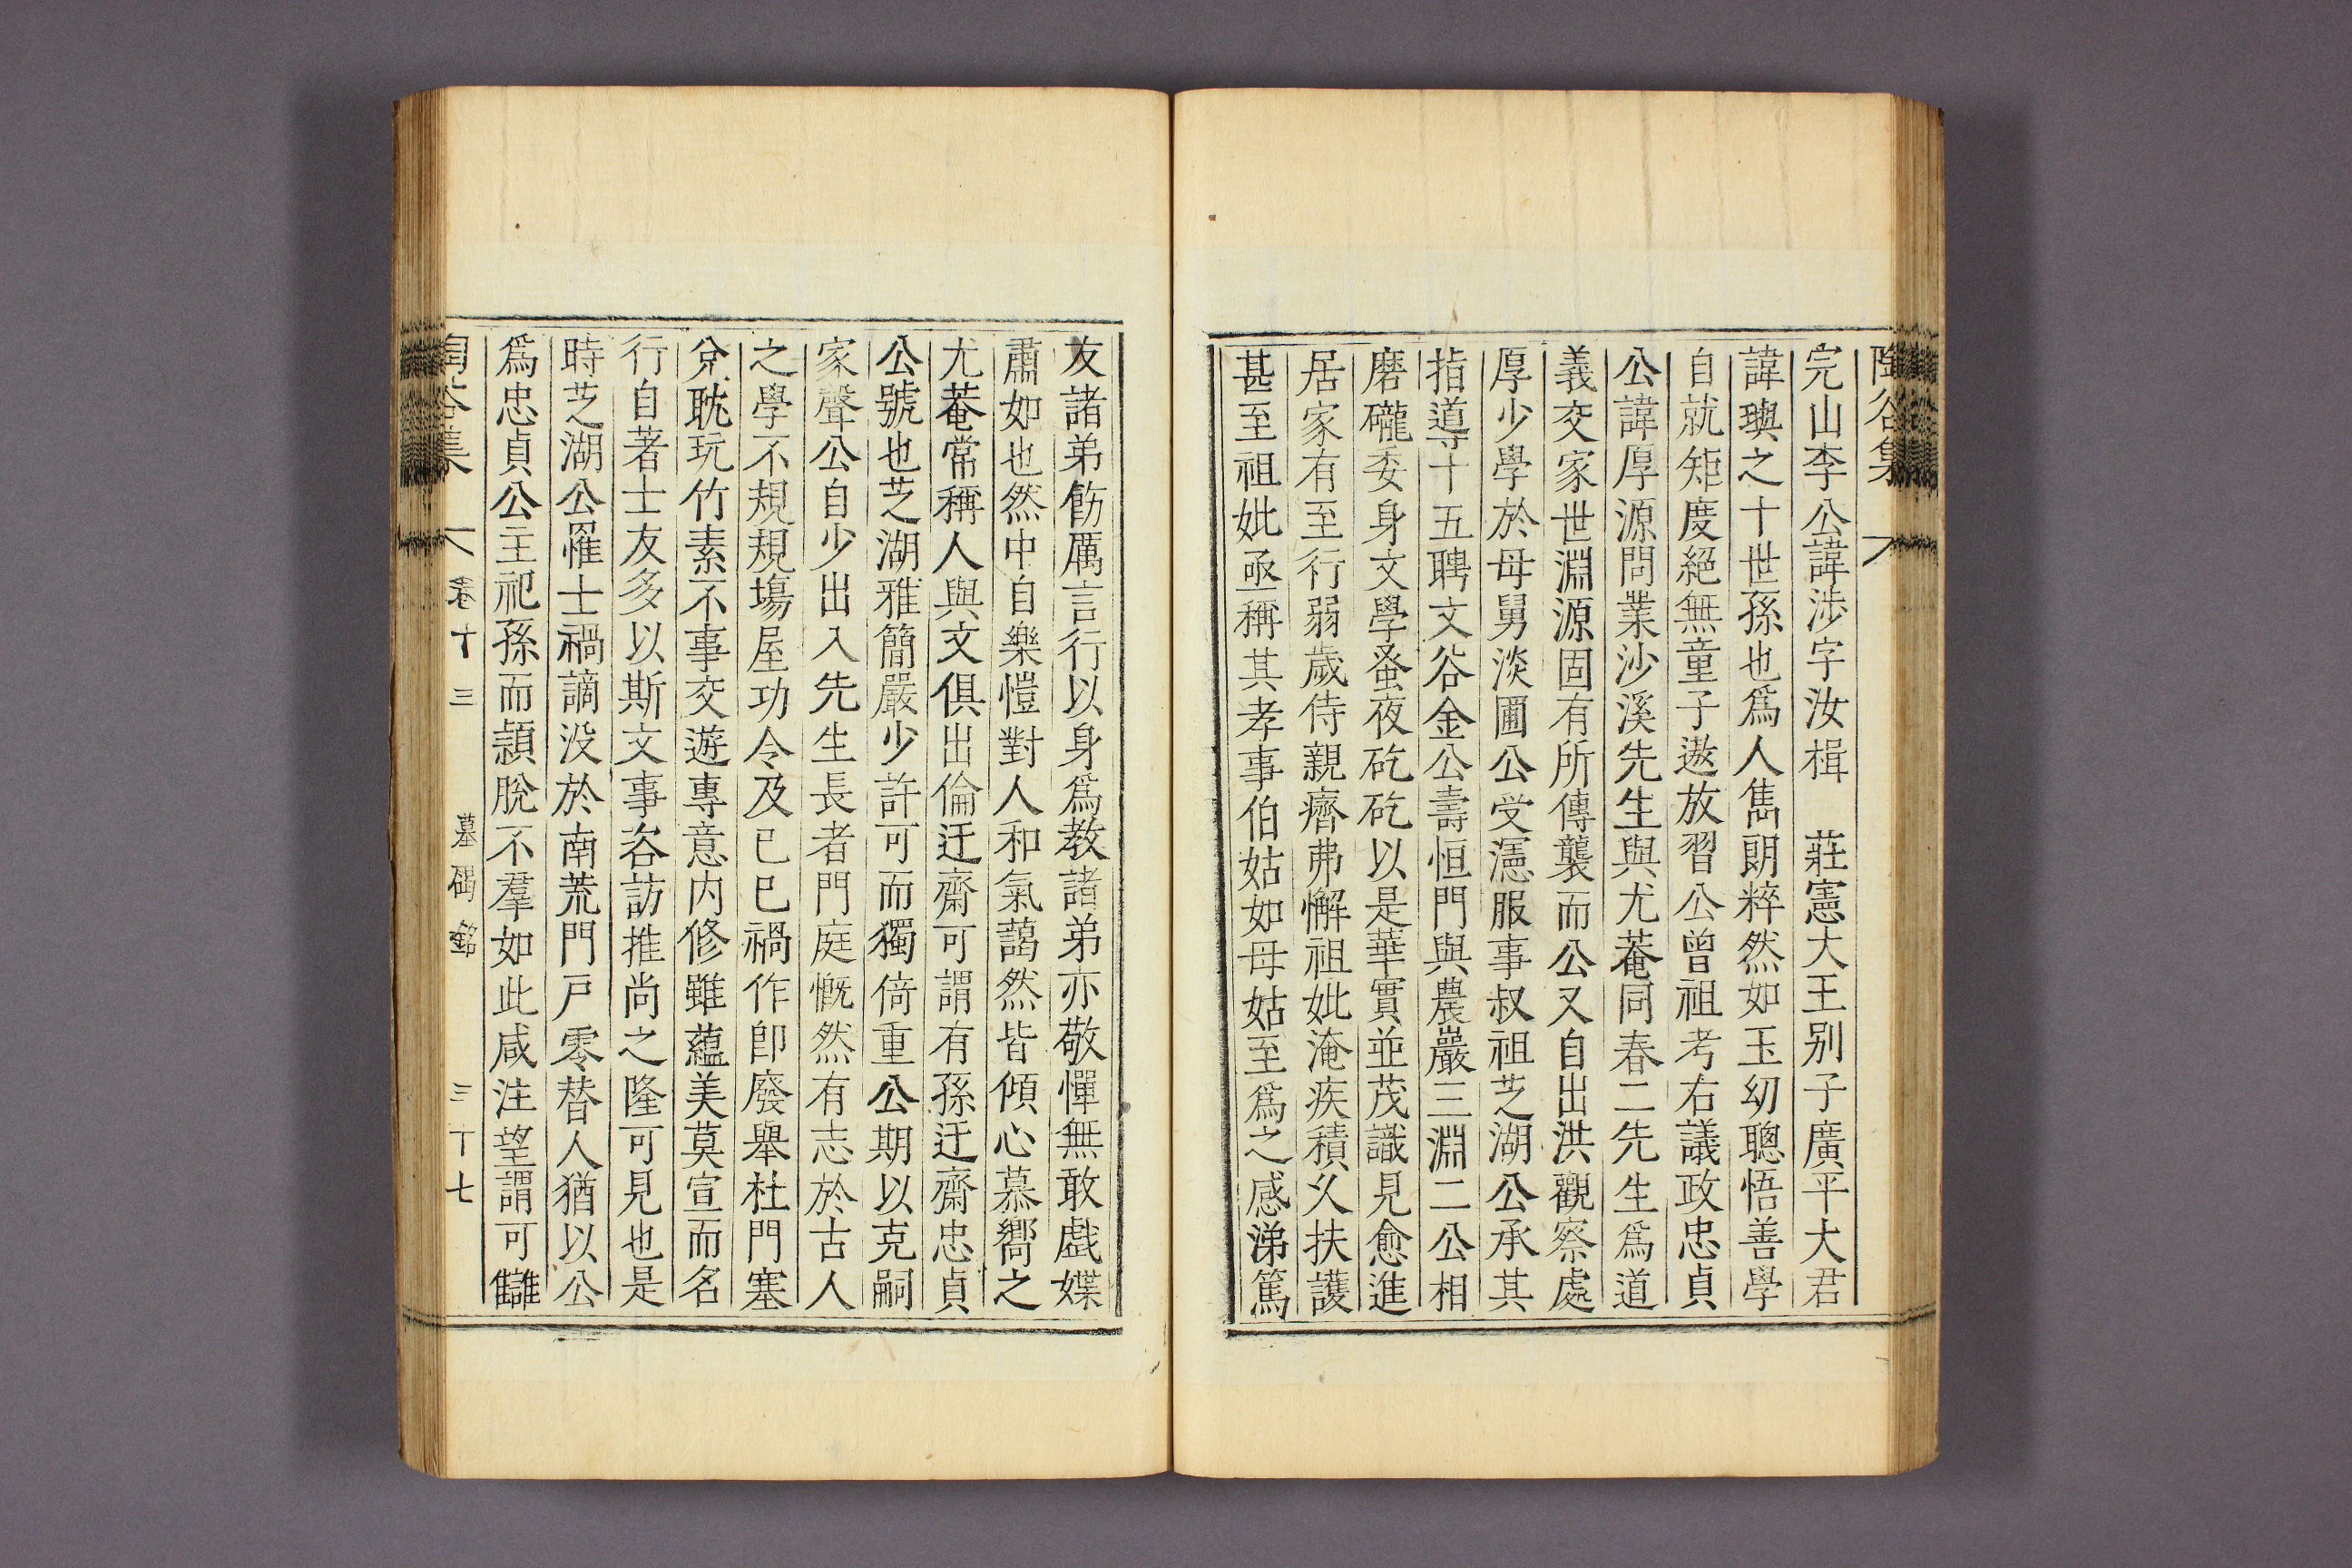 陶谷集
完山李公諱涉字汝楫　莊憲大王别子廣平大君
諱璵之十世孫也爲人雋朗粹然如玉幼聰悟善學
自就矩度絕無童子遨放習公曾祖考右議政忠貞
公諱厚源問業沙溪先生與尤菴同春二先生爲道
義交家世淵源固有所傳襲而公又自出洪觀察處
厚少學於母舅淡圃公受濹服事叔祖芝湖公承其
指導十五聘文谷金公壽恒門與農巖三淵二公相
磨礲委身文學蚤夜矻矻以是華實並茂識見愈進
居家有至行弱歲侍親癠弗懈祖妣淹疾積久扶護
甚至祖妣亟稱其孝事伯姑如母姑至爲之感涕篤
友諸弟飭厲言行以身爲教諸弟亦敬憚無敢戱媟
肅如也然中自樂愷對人和氣藹然皆傾心慕嚮之
尤菴常稱人與文俱出倫迂齋可謂有孫迂齋忠貞
公號也芝湖雅簡嚴少許可而獨倚重公期以克嗣
家聲公自少出入先生長者門庭慨然有志於古人
之學不規規塲屋功令及已巳禍作卽廢舉杜門塞
兊耽玩竹素不事交遊專意内修雖蘊美莫宣而名
行自著士友多以斯文事咨訪推尚之隆可見也是
時芝湖公罹士禍謫没於南荒門戸零替人猶以公
爲忠貞公主祀孫而頴脫不羣如此咸注望謂可讎
陶谷集　卷十三　墓碣銘　三十七